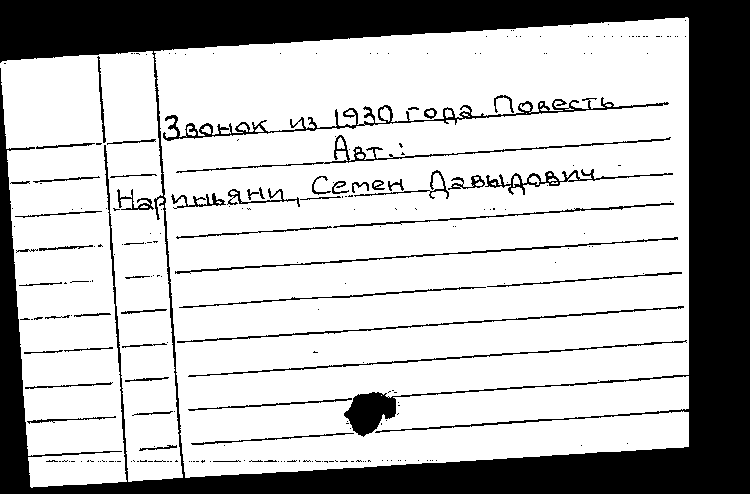 Звонок из 1930 года. Повесть
Авт.:
Нариньяни, Семен Давыдович.